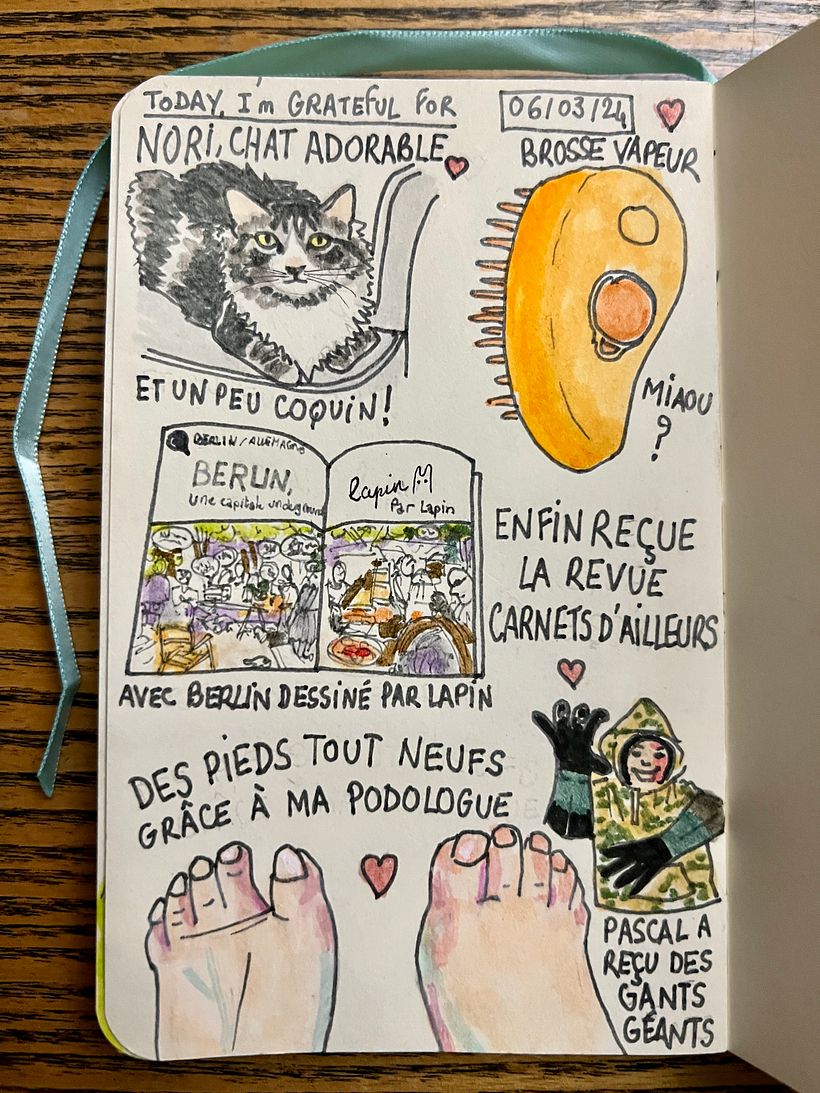 TODAY, I'm GRATEFUL FOR
06/03/24
NORI, CHAT ADORABLE
ET UN PEU COQUIN!
BROSSE VAPEUR
MIAOU
?
BERLIN/ALLEMAGNE
BERLIN,
une capitale underground
lapin
Par Lapin
ENFIN REÇUE
LA REVUE
CARNETS D'AILLEURS
AVEC BERLIN DESSINÉ PAR LAPIN
DES PIEDS TOUT NEUFS
GRÂCE À MA PODOLOGUE
PASCAL A
REÇU DES
GANTS
GÉANTS